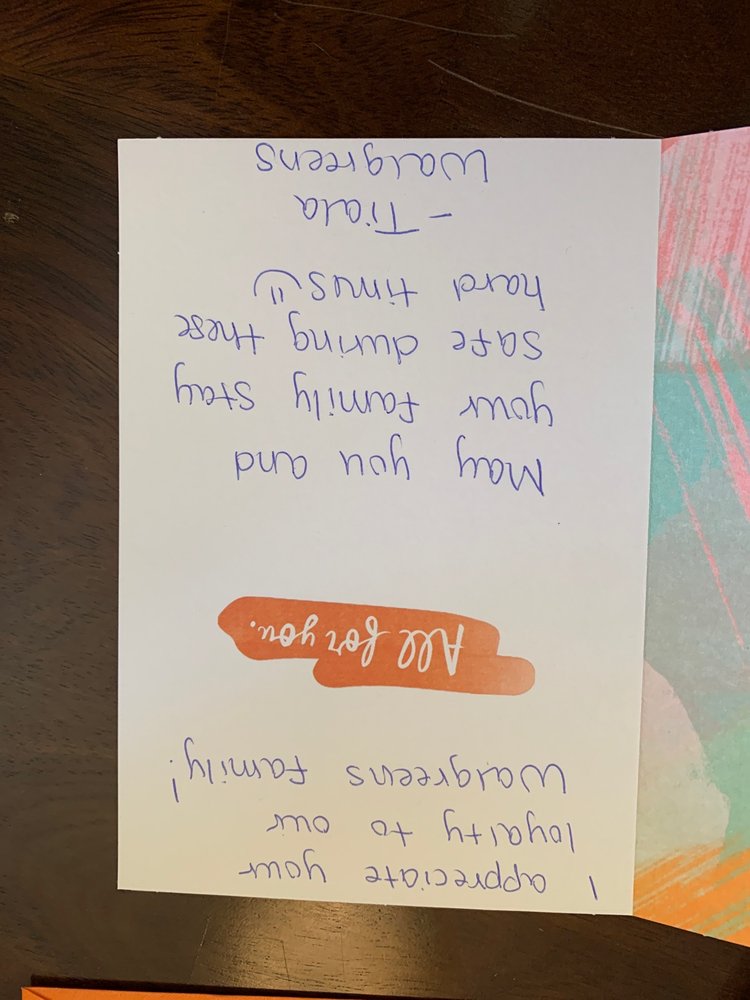 I appreciate your
loyalty to our
Walgreens family!
All for you.
May you and
your family stay
safe during these
hard times
- Tiala
Walgreens